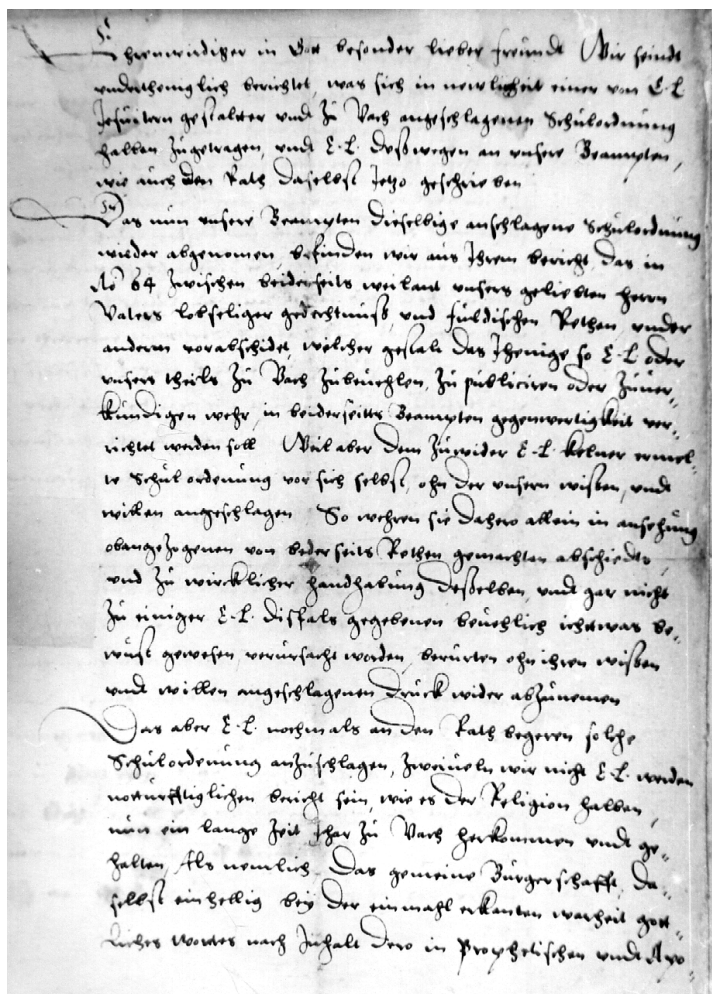 Ehrenwirdiger in Gott besonder lieber freundt Wir seindt
undertheniglich berichtet, was sich in newligkeit einer von E. L.
Jesuitern gestalter undt zu Vach angeschlagenen Schulordnung
halben zugetragen, undt E. L. deßwegen an unsere Beampten,
wie auch den Rath daselbst jetzo geschrieben
Das nun unsere Beampten dieselbige anschlagene Schulordnung
wieder abgenomen, befinden wir aus Ihrem bericht, das in
No 64 zwischen beiderseits weilant unsers geliebten herrn
Vaters lobseliger gedechtnuß, und fuldischen Rethen, under
anderm verabschidet, welcher gestalt das Jhenige so E. L. oder
unsers theils zu Vach zubeuehlen, zu publiciren oder zuuer-
kundigen wehr, in beiderseitts Beampten gegenwertigkeit ver-
richtet werden soll Weil aber dem zuwider E. L. kelner ermel-
te Schulordenung vor sich selbst, ohn der unsern wißen, undt
willen angeschlagen So wehren sie dahero allein in ansehung
obangezogenen von bederseits Rethen gemachten abschiedts,
und zu wircklicher handhabung deßelben, undt gar nicht
zu einiger E. L. disfals gegebenen beuehlich ichtwas be-
wust gewesen, verursacht worden, berurten ohn ihren wißen
undt willen angeschlagenen druck wider abzunemen
Das aber E. L. nochmals an den Rath begeren solche
Schulordenung anzuschlagen, zweiueln wir nicht E. L. werden
notturfftiglichen bericht sein, wie es der Religion halben,
nun ein lange zeit Jhar zu Vach herkommen undt ge-
halten, Als nemlich Das gemeine Burgerschafft, da-
selbst einhellig bey der einmahl erkanten warheit gott-
liches wortes nach Inhalt dero in Prophetischen undt Apo-